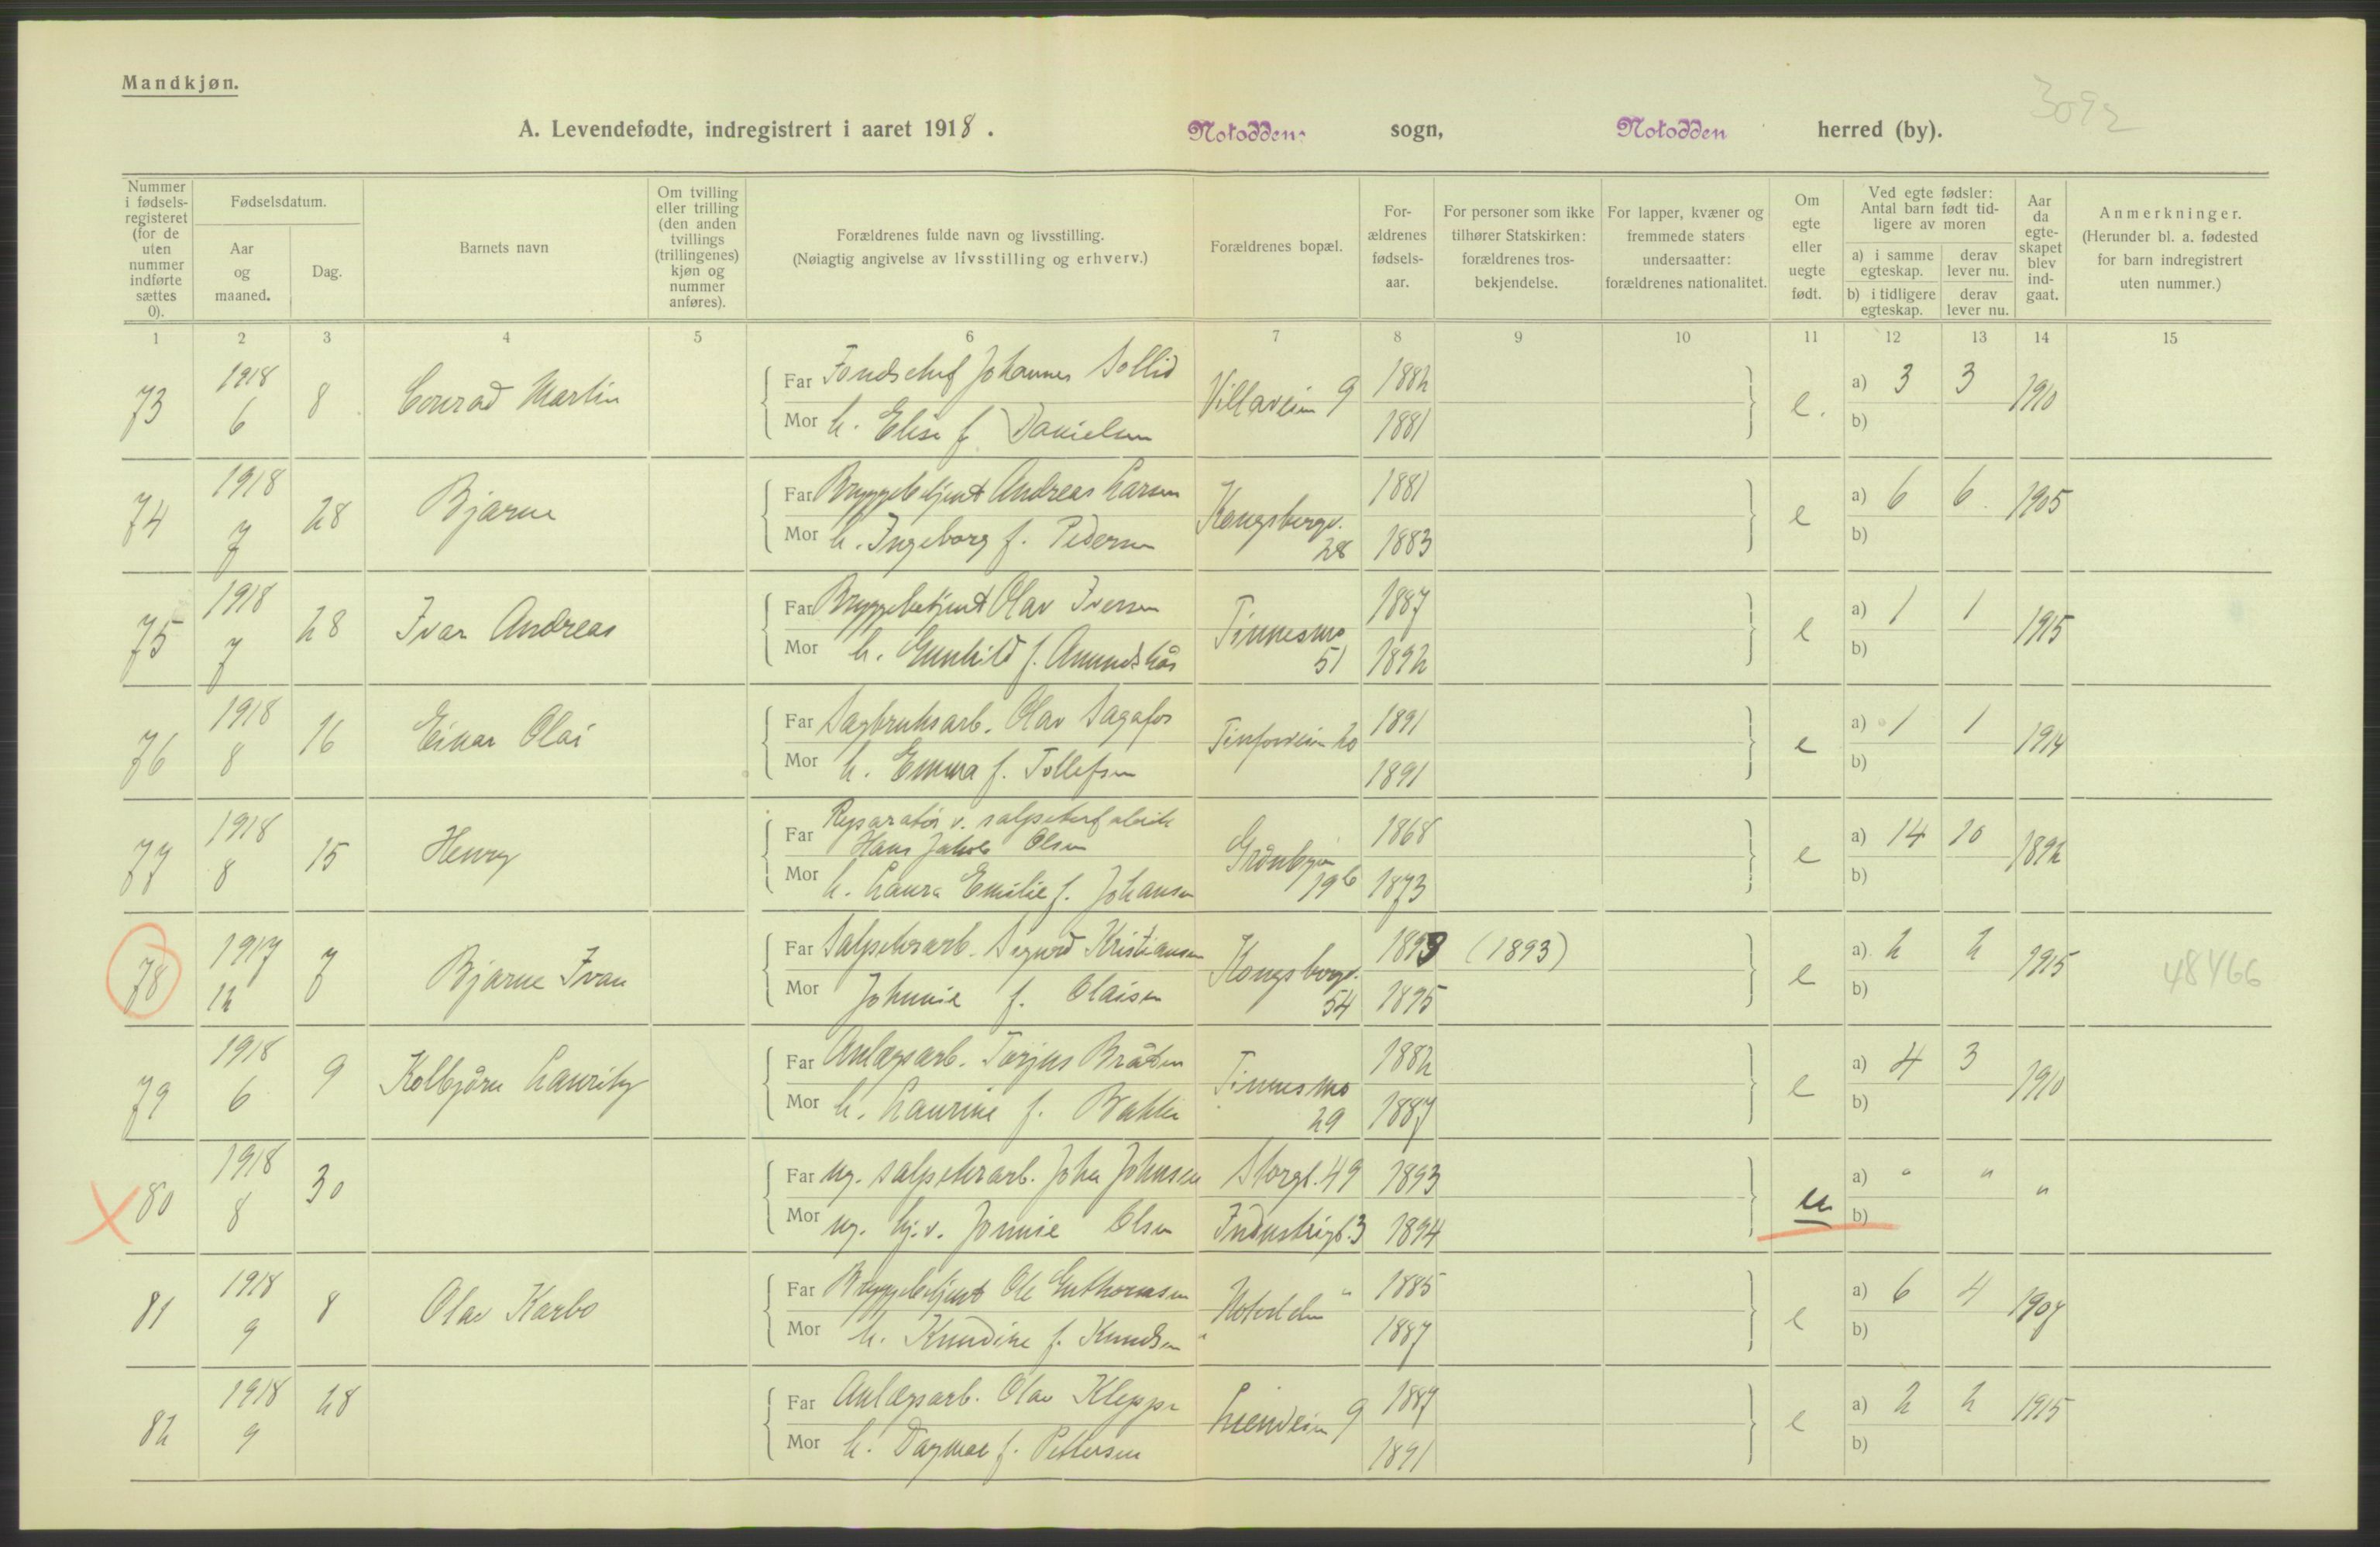 Mandkjøn.
3092
A. Levendefødte, indregistrert i aaret 1918. Notoddens sogn, Notodden herred (by).
Nummer i fødselsregisteret (for de uten nummer indførte sættes 0).
Fødselsdatum.
Aar og maaned.
Dag.
Barnets navn
Om tvilling eller trilling (den anden tvillings (trillingenes) kjøn og nummer anføres).
Forældrenes fulde navn og livsstilling.
(Nøiagtig angivelse av livsstilling og erhverv.)
Forældrenes bopæl.
Forældrenes fødselsaar.
For personer som ikke tilhører Statskirken: forældrenes trosbekjendelse.
For lapper, kvæner og fremmede staters undersaatter: forældrenes nationalitet.
Om egte eller uegte født.
Ved egte fødsler: Antal barn født tidligere av moren
a) i samme egteskap. derav lever nu.
b) i tidligere egteskap. derav lever nu.
Aar da egteskapet blev indgaat.
Anmerkninger.
(Herunder bl. a. fødested for barn indregistrert uten nummer.)
1 2 3 4 5 6 7 8 9 10 11 12 13 14 15
73 1918 6 8 Conrad Martin Far Fondschef Johannes Sollid Villaveien 9 1882 e. a) 3 3 1910
Mor h. Elise f. Danielsen 1881 b)
74 1918 7 28 Bjarne Far Bryggebetjent Andreas Larsen Kongsbergv. 28 1881 e a) 6 6 1905
Mor h. Ingeborg f. Pedersen 1883 b)
75 1918 7 28 Ivar Andreas Far Bryggebetjent Olav Iversen Tinnesmo 51 1887 e a) 1 1 1915
Mor h. Gunhild f. 1892 b)
76 1918 8 16 Einar Olai Far Sagbruksarb. Olav Sagafos Tinfosveien 20 1891 e a) 1 1 1914
Mor h. Emma f. Tollefsen 1891 b)
77 1918 8 15 Henry Far Reparatør v. salpeterfabrik
Hans Jakob Olsen Grønbyen 19 b 1868 e a) 14 10 1892
Mor h. Laura Emilie f. Johansen 1873 b)
78 1917 12 7 Bjarne Ivan Far Salpeterarb. Sigurd Kristiansen Kongsbergv. 54 1893 (1893) e a) 2 2 1915 48466
Mor Johnnie f. Olaisen 1895 b)
79 1918 6 9 Kolbjørn Lauritz Far Anlægsarb. Torjus Bråten Tinnesmo 29 1882 e a) 4 3 1910
Mor h. Laurine f. Bakke 1887 b)
80 1918 8 30 Far ug. salpeterarb. John Johnsen Storgt. 49 1893 u a) " " "
Mor ug. hj.v. Jonnie Olsen Industrigt. 3 1894 b)
81 1918 9 8 Olav Karbo Far Bryggebetjent Ole Guthormsen Notodden " 1885 e a) 6 4
Mor h. Knudine f. Knudsen " 1887 b)
82 1918 9 28 Far Anlægsarb. Olav Kleppe Lienveien 9 1887 e a) 2 2 1915
Mor h. Dagmar f. Pettersen 1891 b)